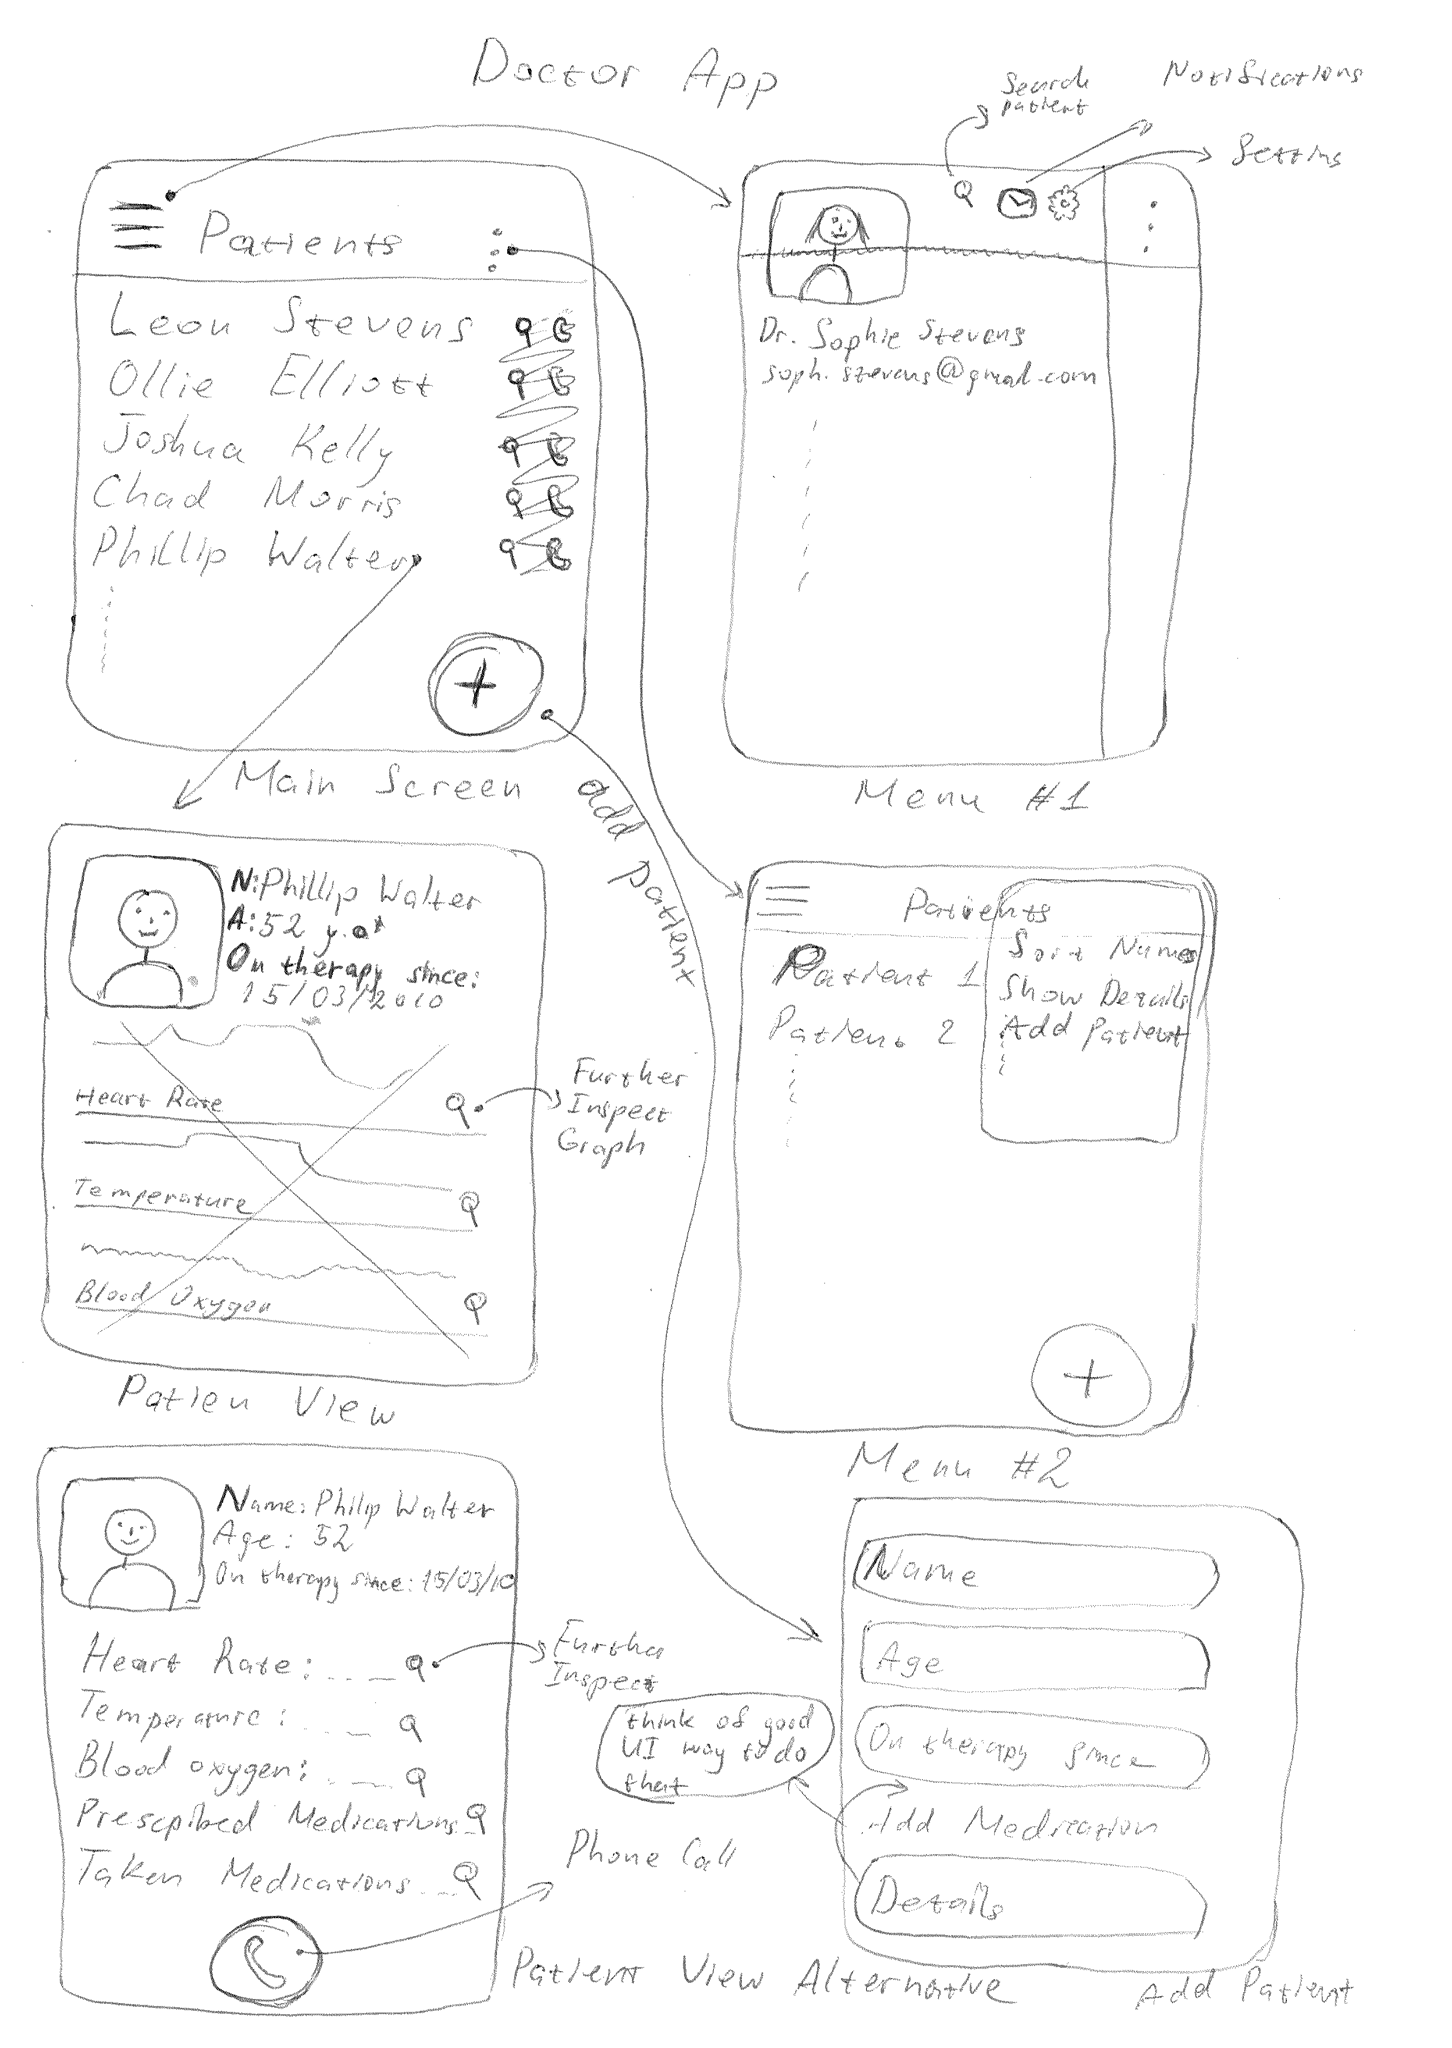 Doctor App
Search
patient
Notifications
Settins
Patients
Leon Stevens
Ollie Elliott
Joshua Kelly
Chad Morris
Phillip Walter
Main Screen
Dr. Sophie Stevens
soph.stevens@gmail.com
Menu #1
add patient
N: Phillip Walter
A: 52 y.o
On therapy since:
15/03/2010
Heart Rate
Temperature
Blood Oxygen
Further
Inspect
Graph
Patien View
Patients
Patient 1
Patient 2
Sort Names
Show Details
Add Patient
Menu #2
Name: Philip Walter
Age: 52
On therapy since: 15/03/10
Heart Rate:
Temperature:
Blood oxygen:
Prescpibed Medications
Taken Medications
Further
Inspect
Phone Call
Patient View Alternative
Name
Age
On therapy since
Add Medication
Details
think of good
UI way to do
that
Add Patient